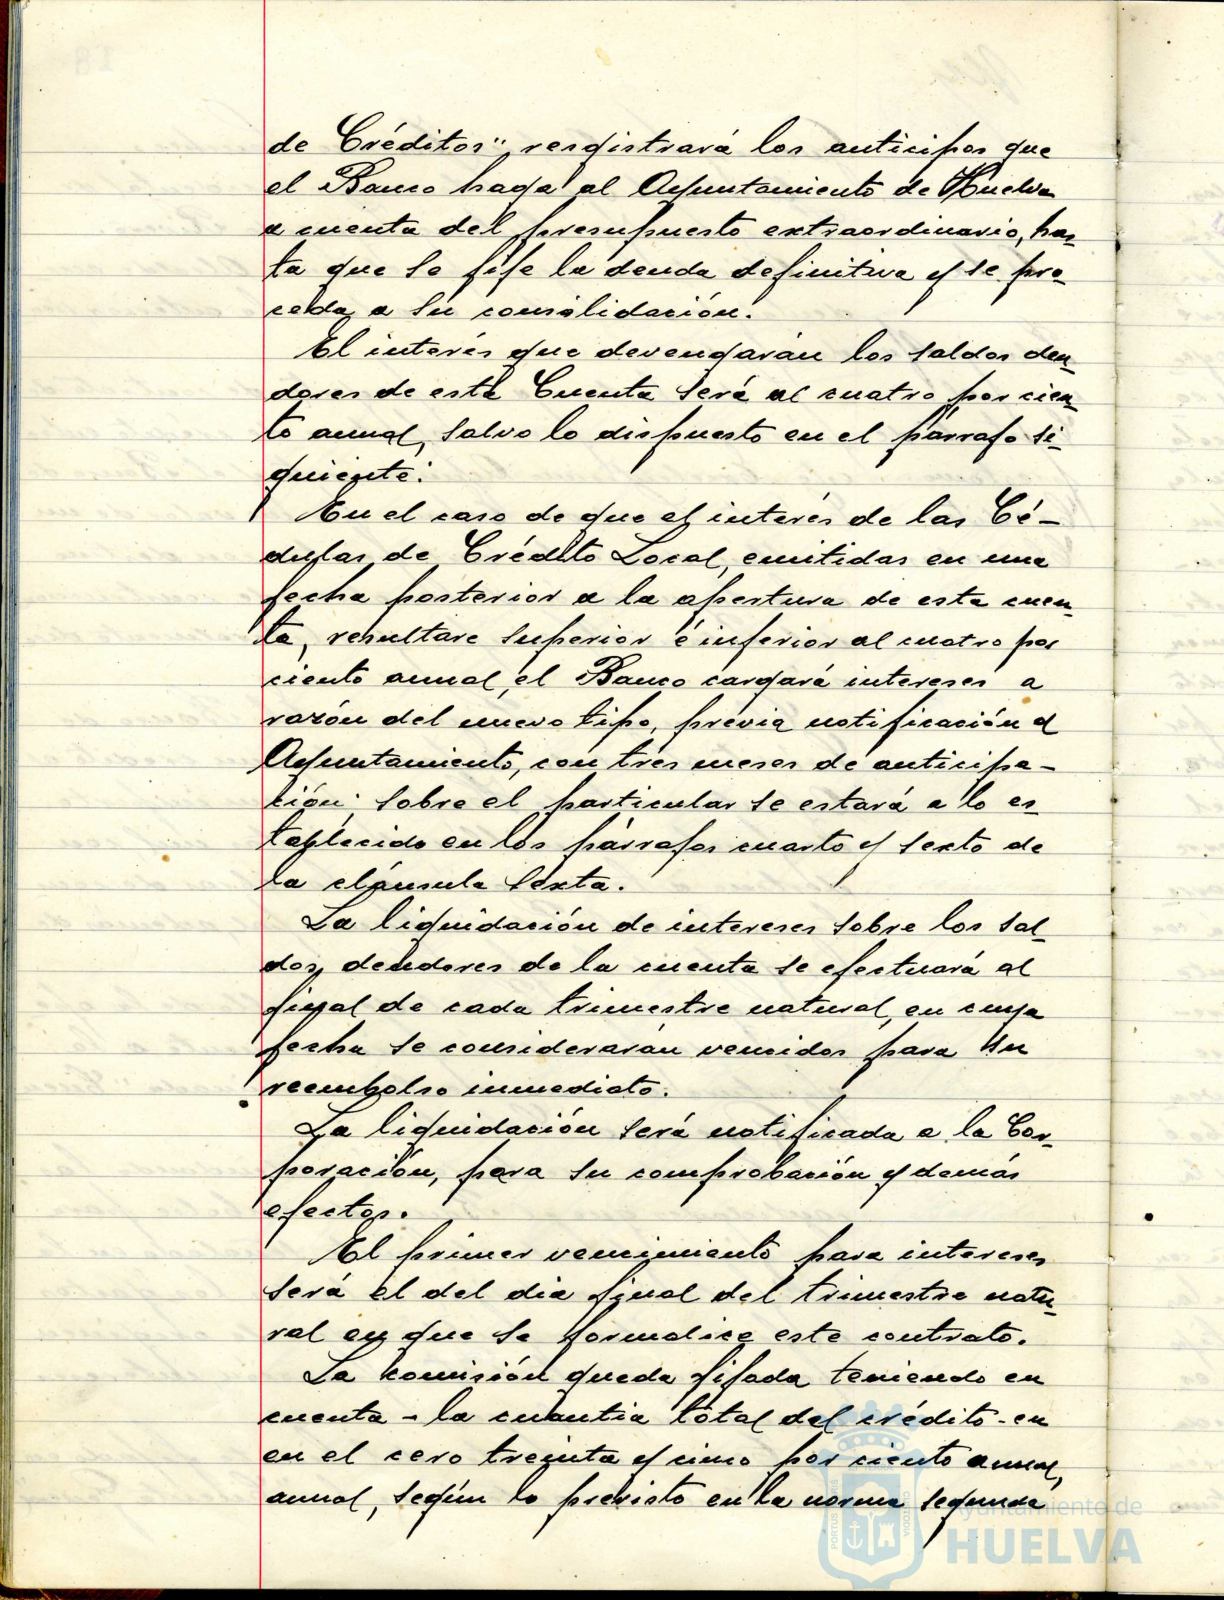 de Créditos" resgistrará los anticipos que
el Banco haga al Ayuntamiento de Huelva
a cuenta del presupuesto extraordinario, has-
ta que se fije la deuda definitiva y se pro-
ceda a su consolidación.
El interés que devengarán los saldos deu-
dores de esta Cuenta será al cuatro por cien-
to anual, salvo lo dispuesto en el párrafo si-
guiente:
En el caso de que el interés de las Cé-
dulas de Crédito Local, emitidas en una
fecha posterior a la apertura de esta cuen-
ta, resultare superior é inferior al cuatro por
ciento anual, el Banco cargará intereses a
razón del nuevo tipo, previa notificación al
Ayuntamiento, con tres meses de anticipa-
ción sobre el particular se estará a lo es-
tablecido en los párrafos cuarto y sexto de
la cláusula sexta.
La liquidación de intereses sobre los sal-
dos deudores de la cuenta se efectuará al
final de cada trimestre natural, en cuya
fecha se considerarán vencidos para su
reembolso inmediato.
La liquidación será notificada a la Cor-
poración, para su comprobación y demás
efectos.
El primer vencimiento para intereses
será el del día final del trimestre natu-
ral en que se formalice este contrato.
La comisión queda fijada teniendo en
cuenta - la cuantia total del crédito - en
en el cero treinta y cinco por ciento anual,
anual, según lo previsto en la norma segunda
Ayuntamiento de
HUELVA